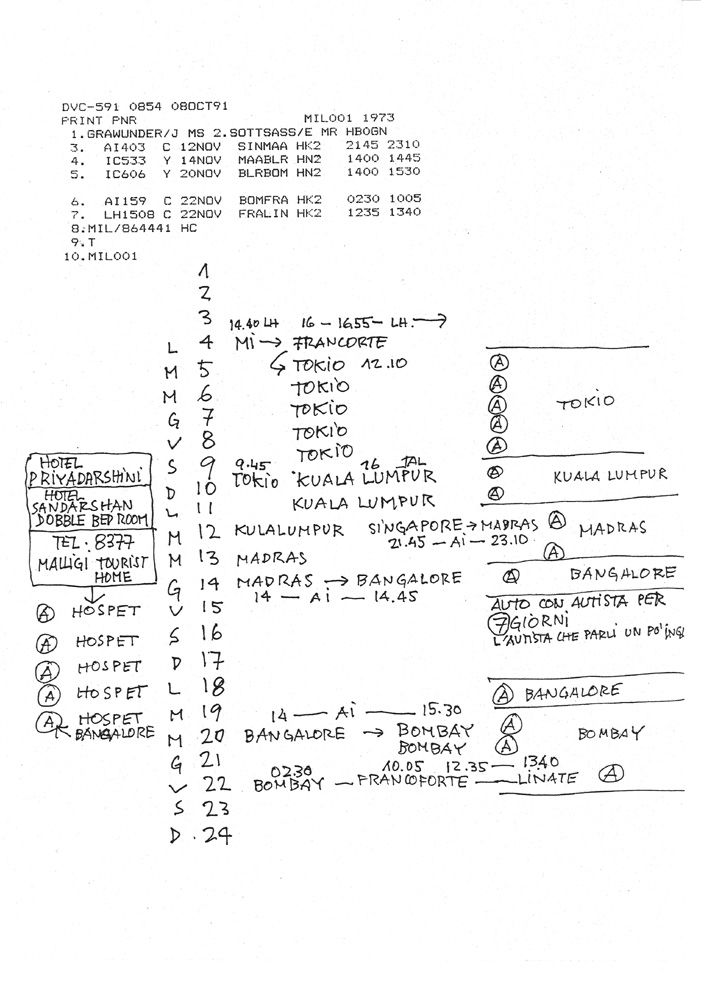 DVC-591 0854 08OCT91
PRINT PNR MIL001 1973
1.GRAWUNDER/J MS 2.SOTTSASS/E MR HBOGN
3. AI403 C 12NOV SINMAA HK2 2145 2310
4. IC533 Y 14NOV MAABLR HN2 1400 1445
5. IC606 Y 20NOV BLRBOM HN2 1400 1530
6. AI159 C 22NOV BOMFRA HK2 0230 1005
7. LH1508 C 22NOV FRALIN HK2 1235 1340
8.MIL/864441 HC
9.T
10.MIL001
1
2
3 14.40 LH 16 — 16.55 — LH. →
L 4 Mi → FRANCORTE
M 5 TOKIO 12.10 Ⓐ
M 6 TOKIO Ⓐ
G 7 TOKIO Ⓐ TOKIO
V 8 TOKIO Ⓐ
TOKIO Ⓐ
S 9 9.45 16 JAL
TOKIO KUALA LUMPUR Ⓐ KUALA LUMPUR
D 10
L 11 KUALA LUMPUR Ⓐ
M 12 KULALUMPUR SINGAPORE → MADRAS Ⓐ MADRAS
21.45 — Ai — 23.10
M 13 MADRAS Ⓐ
G 14 MADRAS → BANGALORE Ⓐ BANGALORE
14 — Ai — 14.45
HOTEL
PRIYADARSHINI
HOTEL
SANDARSHAN
DOBBLE BED ROOM
TEL. 8377
MALLIGI TOURIST
HOME
Ⓐ HOSPET V 15 AUTO CON AUTISTA PER
7 GIORNI
L'AUTISTA CHE PARLI UN PO' INGL
Ⓐ HOSPET S 16
Ⓐ HOSPET D 17
Ⓐ HOSPET L 18 Ⓐ BANGALORE
Ⓐ HOSPET M 19 14 — Ai — 15.30
BANGALORE M 20 BANGALORE → BOMBAY Ⓐ BOMBAY
BOMBAY Ⓐ
G 21 02.30 10.05 12.35 — 1340
V 22 BOMBAY — FRANCOFORTE — LINATE Ⓐ
S 23
D . 24